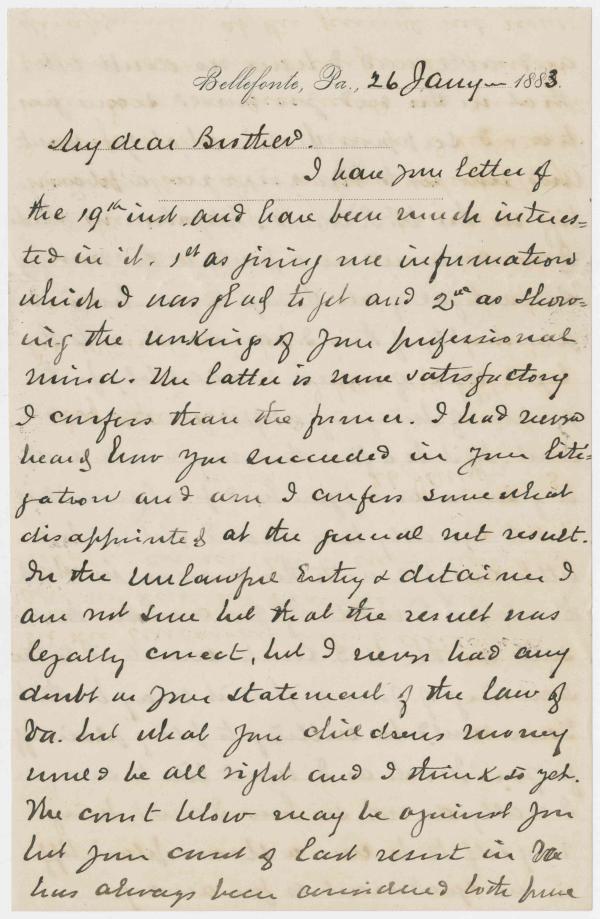 Bellefonte, Pa., 26 Jany 1883.
My dear Brother.
I have your letter of
the 19th inst. and have been much interes=
ted in it. 1st as giving me information
which I was glad to get and 2nd as show=
ing the workings of your professional
mind. The latter is more satisfactory
I confess than the former. I had never
heard how you succeeded in your liti=
gation and am I confess somewhat
disappointed at the general net result.
In the Unlawful Entry & detainer I
am not sure but that the result was
legally correct, but I never had any
doubt on your statement of the law of
Va. but what your childrens money
would be all right and I think so yet.
The court below may be against you
but your court of last resort in Va
has always been considered both pure